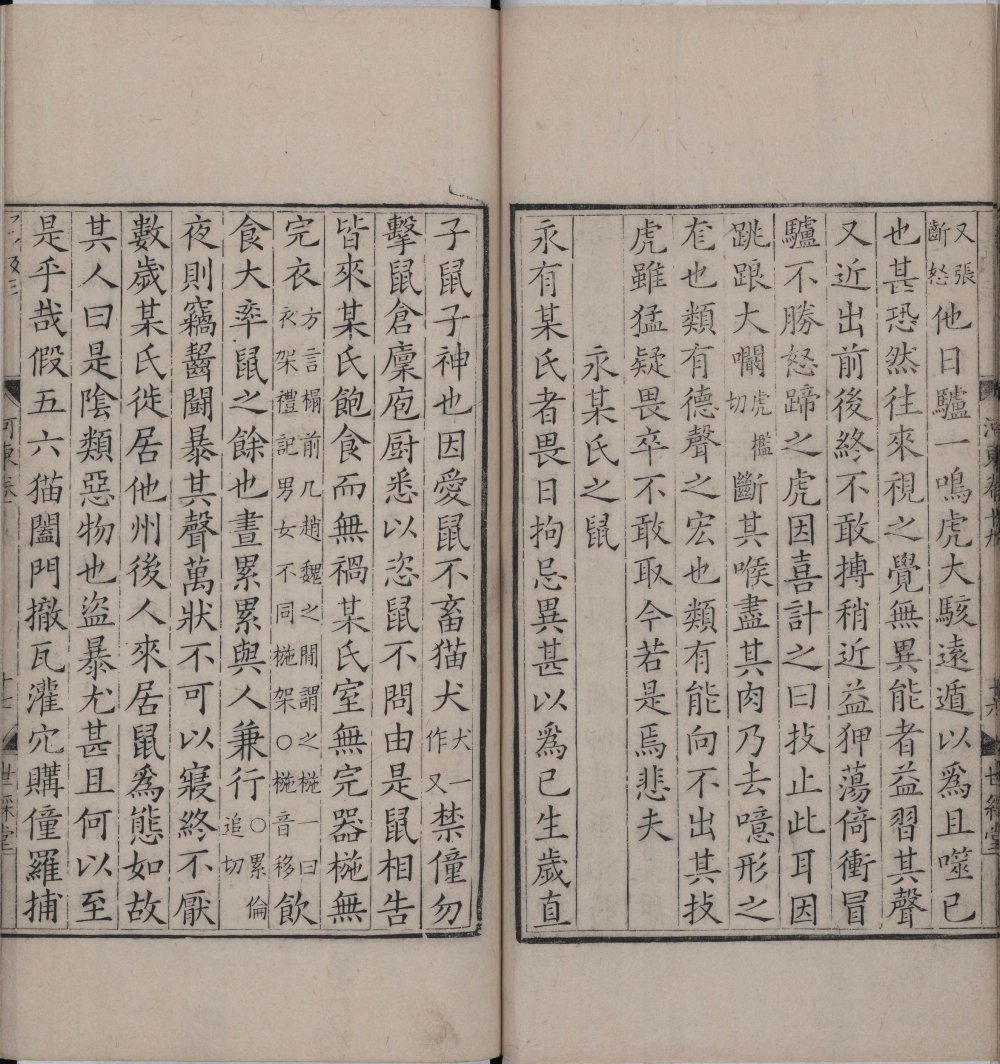 又張斷怒他日驢一鳴虎大駭遠遁以爲且噬已
也甚恐然往來視之覺無異能者益習其聲
又近出前後終不敢搏稍近益狎蕩倚衝冒
驢不勝怒蹄之虎因喜計之曰技止此耳因
跳踉大㘚虎檻切斷其喉盡其肉乃去噫形之
尨也類有德聲之宏也類有能向不出其技
虎雖猛疑畏卒不敢取今若是焉悲夫
永某氏之鼠
永有某氏者畏日拘忌異甚以爲已生歲直
子鼠子神也因愛鼠不畜猫犬犬一作又禁僮勿
擊鼠倉廩庖厨悉以恣鼠不問由是鼠相告
皆來某氏飽食而無禍某氏室無完器椸無
完衣方言榻前几趙魏之間謂之椸一曰衣架禮記男女不同椸架○椸音移飲
食大率鼠之餘也晝累累與人兼行○累倫追切
夜則竊齧鬪暴其聲萬狀不可以寢終不厭
數歲某氏徙居他州後人來居鼠爲態如故
其人曰是陰類惡物也盜暴尤甚且何以至
是乎哉假五六猫闔門撤瓦灌穴購僮羅捕
河東卷十
十七
世綵堂